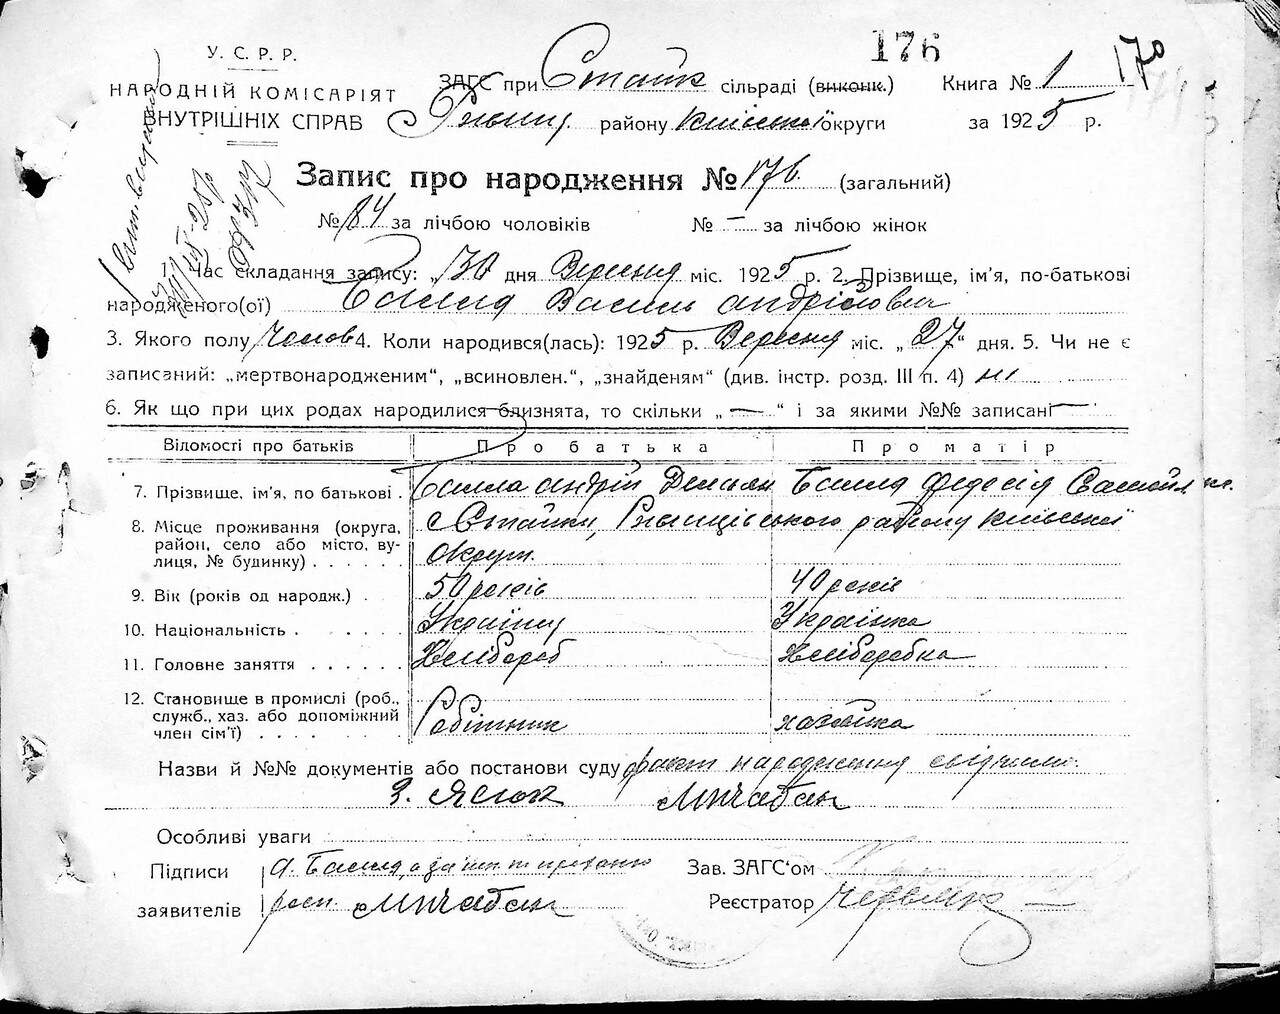 176
170
У. С. Р. Р.
НАРОДНІЙ КОМІСАРІЯТ
ВНУТРІШНІХ СПРАВ
ЗАГС при Стайк сільраді (виконк.) Книга № 1
району Київської округи за 1925 р.
Запис про народження № 176 (загальний)
№ 84 за лічбою чоловіків № — за лічбою жінок
1. Час складання запису: „30 дня Вересня міс. 1925 р. 2. Прізвище, ім'я, по-батькові
народженого(ої) Василь Андрійович
3. Якого полу Чолов 4. Коли народився(лась): 1925 р. Вересня міс. „27“ дня. 5. Чи не є
записаний: „мертвонародженим“, „всиновлен.“, „знайденям“ (див. інстр. розд. III п. 4) ні
6. Як що при цих родах народилися близнята, то скільки „—“ і за якими №№ записані —
Відомості про батьків Про батька Про матір
7. Прізвище, ім'я, по батькові . Андрій Демьян Федосія Самойл
8. Місце проживання (округа, Стайки, Ржищівського району Київської
район, село або місто, ву-
лиця, № будинку) . . . . . . округи.
9. Вік (років од народж.) . 50 років 40 років
10. Національність . . . . . . Українец Українка
11. Головне заняття . . . . . . Хлібороб Хлібопебка
12. Становище в промислі (роб.,
служб., хаз. або допоміжний Робітник хазяйка
член сім'ї) . . . .
Назви й №№ документів або постанови суду факт народження свідчили:
З. Ясюк
Особливі уваги
Підписи Зав. ЗАГС'ом
заявителів Реєстратор